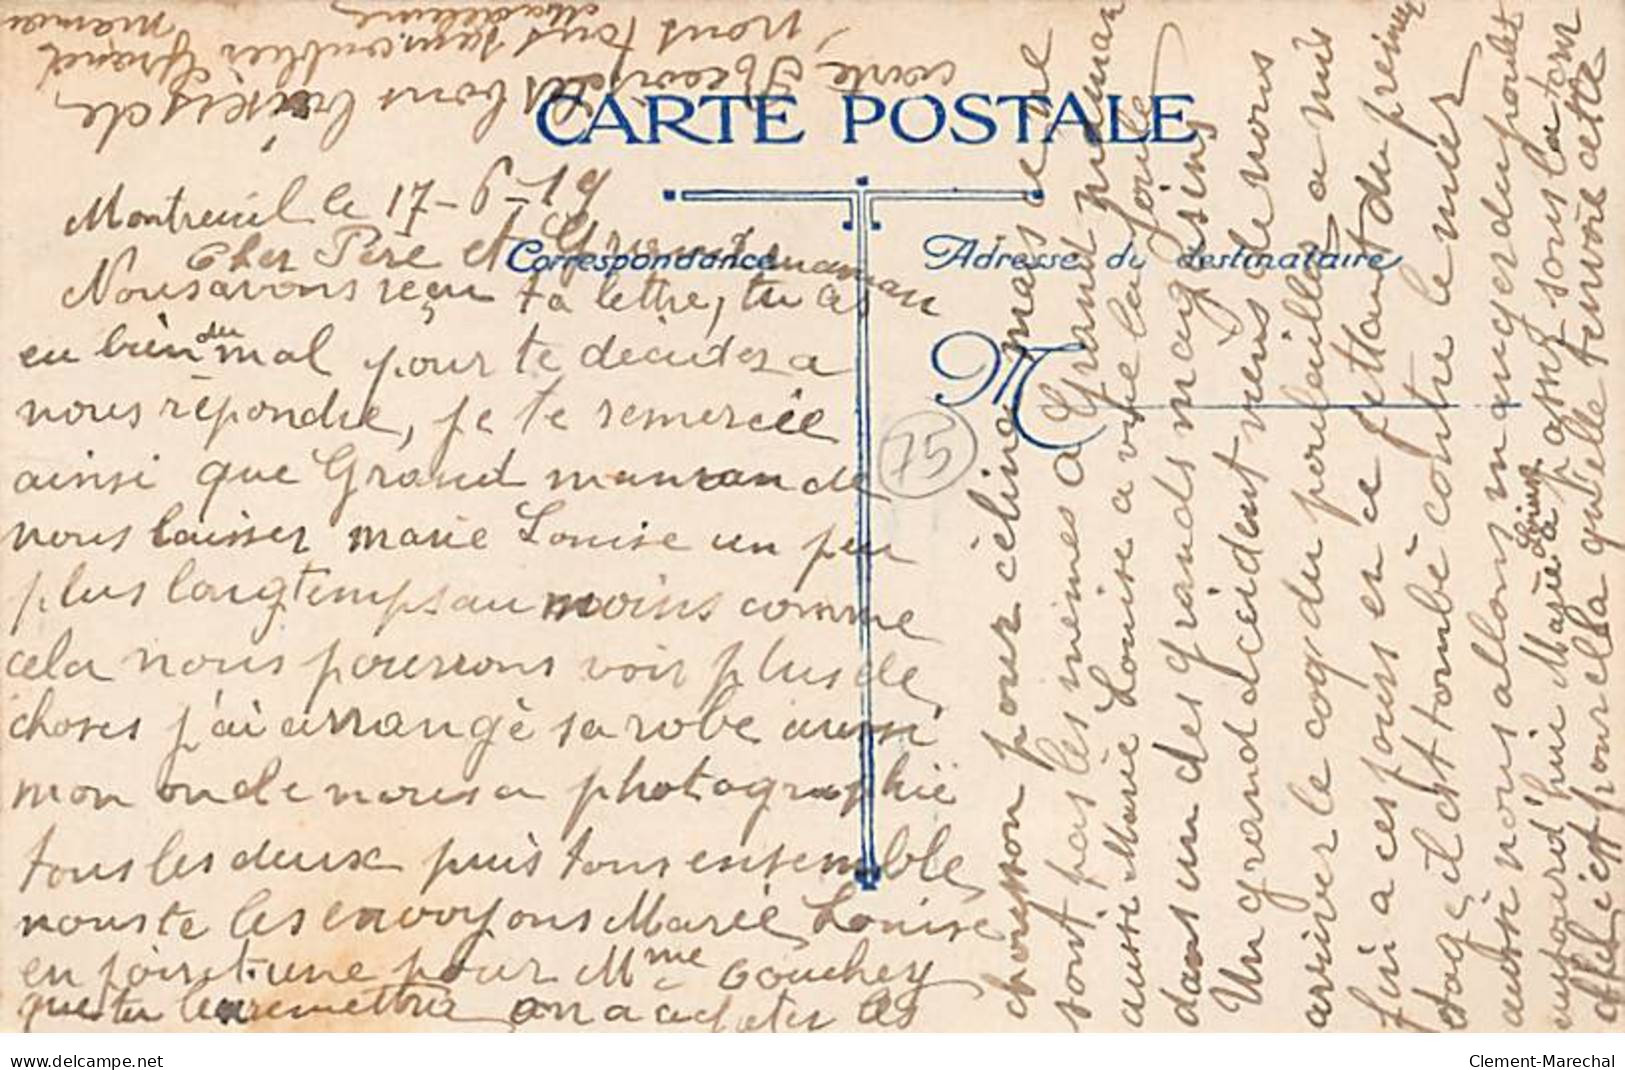 CARTE POSTALE
Correspondance
Adresse du destinataire
M
75
Montreuil le 17-6-19
Cher Père et Grand maman
Nous avons reçu ta lettre, tu as
eu bien du mal pour te décider a
nous répondre, je te remercie
ainsi que Grand maman de
nous laisser marie Louise un peu
plus longtemps au moins comme
cela nous pourrons voir plus de
choses j'ai arrangé sa robe aussi
mon oncle nous a photographié
tous les deux puis tous ensemble
nous te les envoyons Marie Louise
en joint une pour Mme Gouchey
que tu lui remettra on a acheter les
chausson pour céline mais ce ne
sont pas les mêmes a Grand maman
aussi Marie Louise a vue la foule
dans un des grands magasins
Un grand accident viens de nous
arriver le coq du poulailler a mis
fin a ces jours en ce jettant du premier
étage il est tombé contre le mur
aussi nous allons manger du poulet
aujourd'hui Marie Louise a passé sous la tour
effel c'est pour cela qu'elle t'envoie cette
carte Recois les bons baisers de
nous tous sans oublier Grand
maman
Madeleine
www.delcampe.net
Clement-Marechal